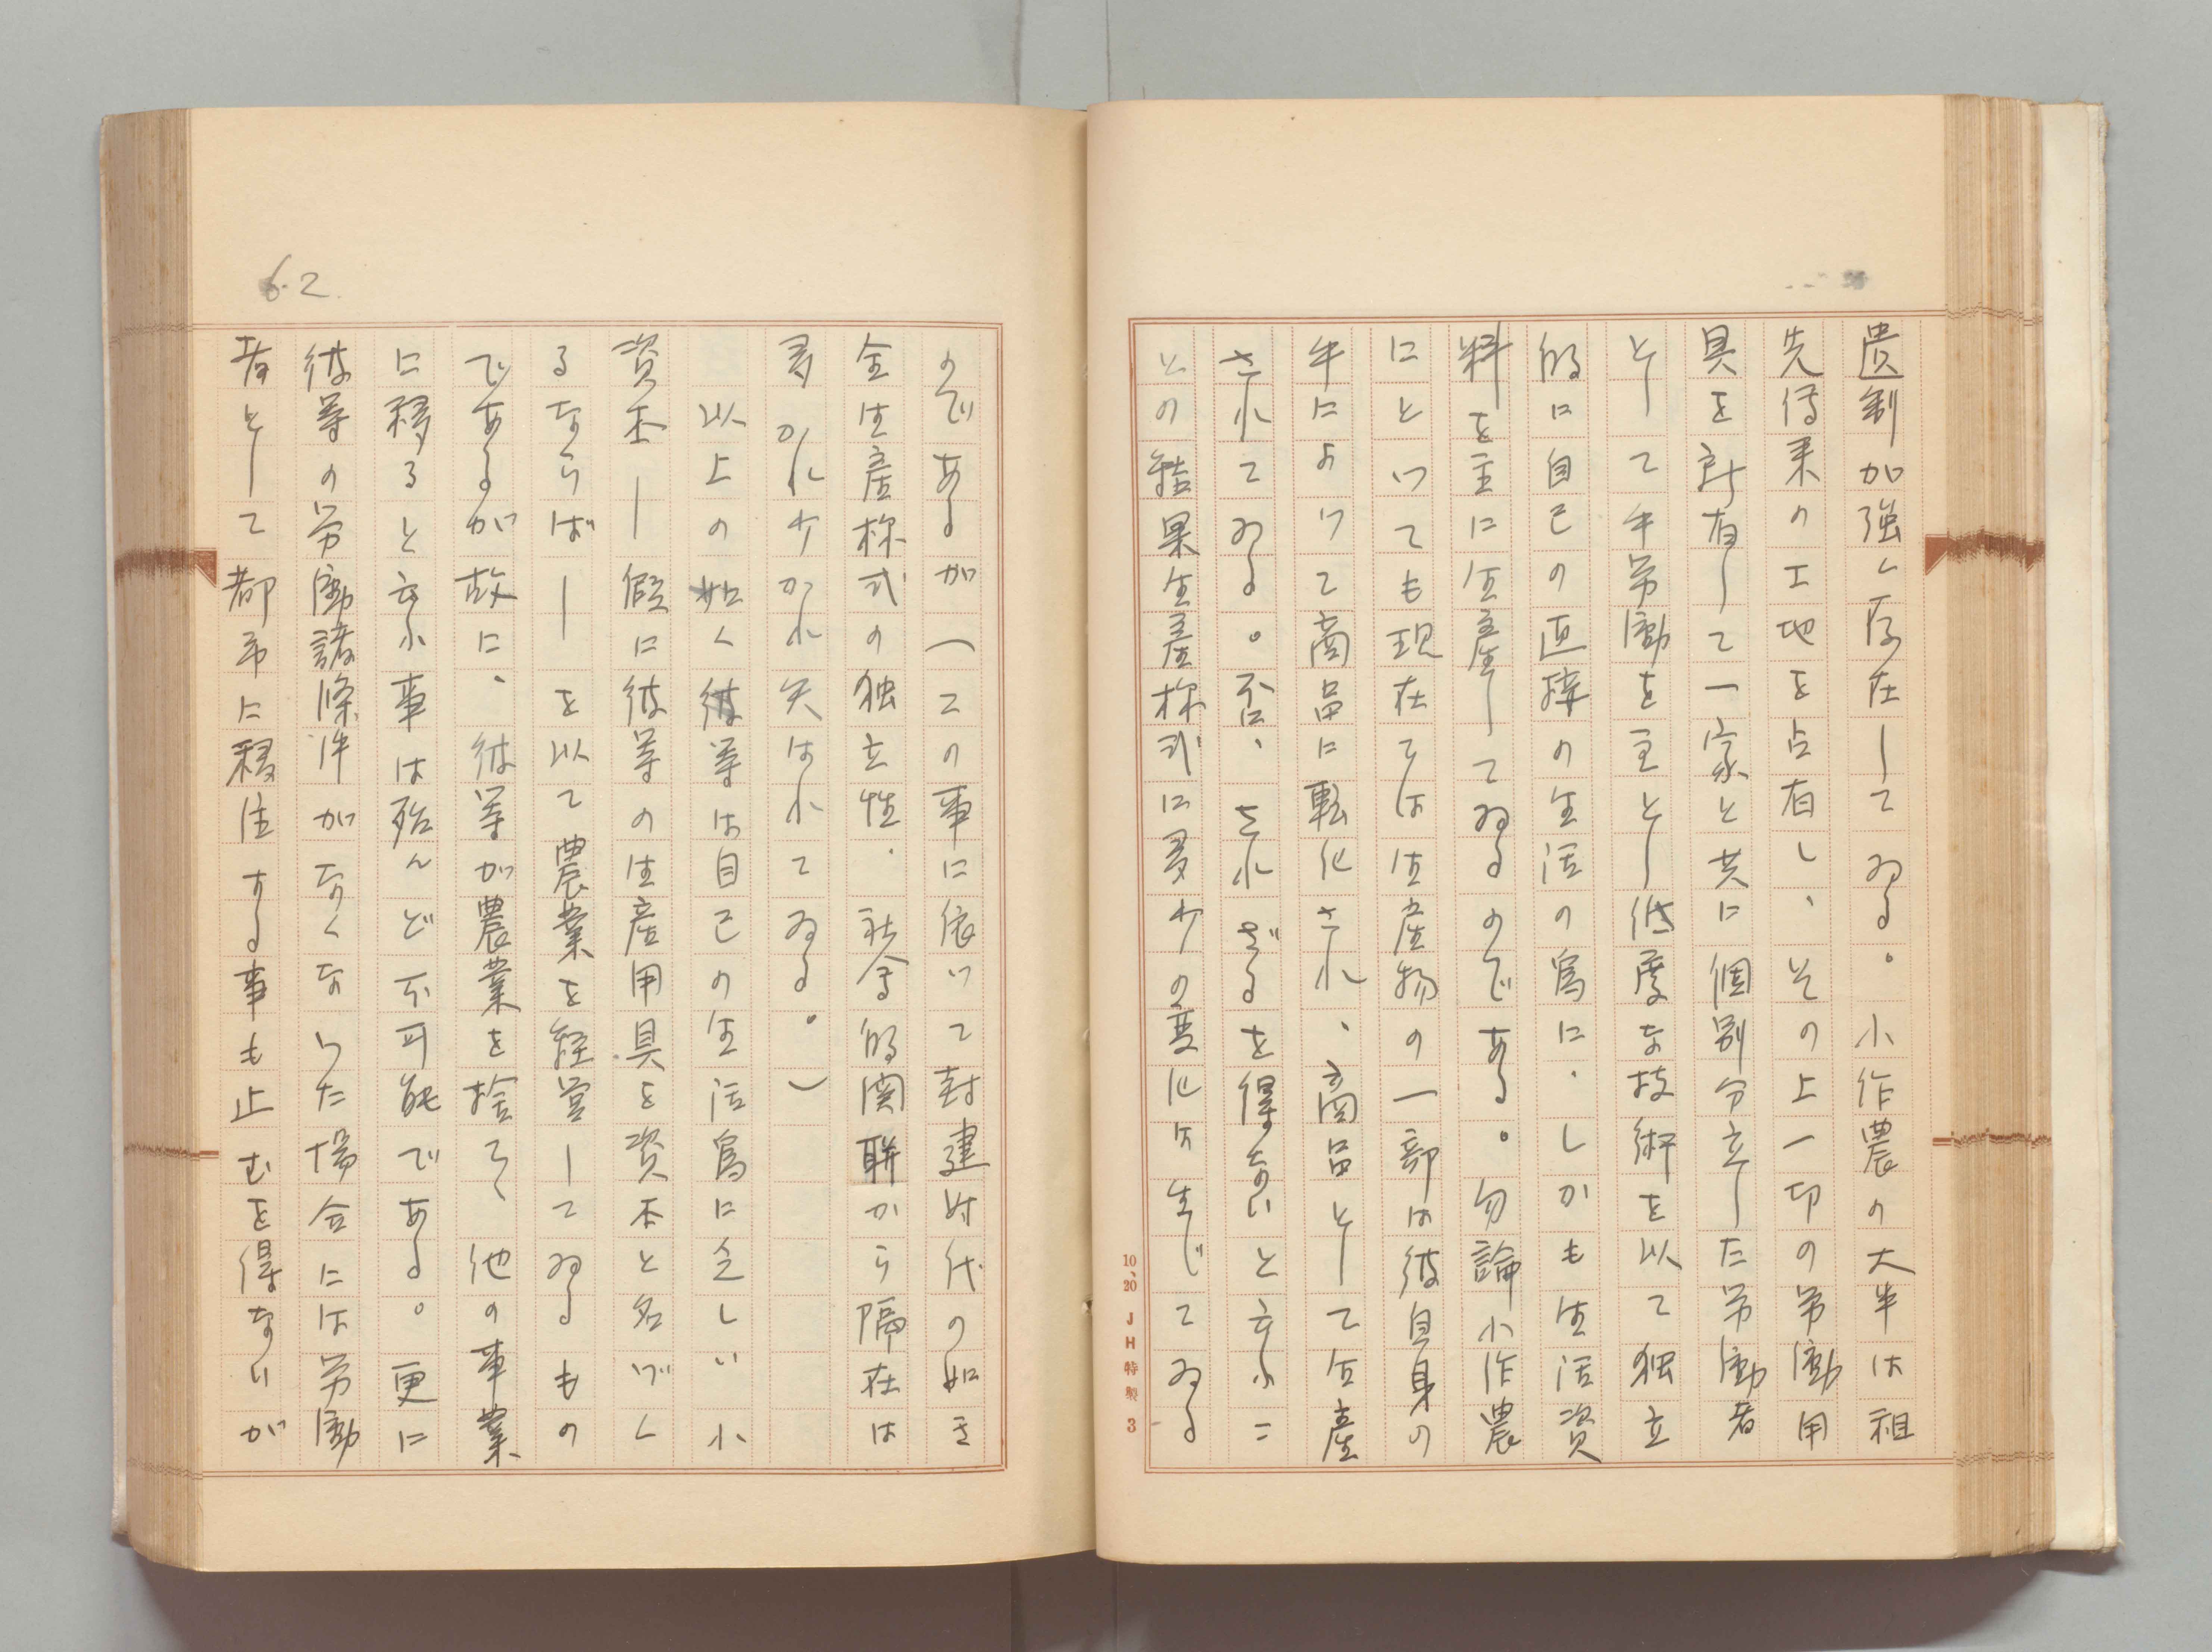 遺制が強く存在してゐる。小作農の大半は祖
先傳来の土地を占有し、その上一切の労働用
具を所有して一家と共に個別分立した労働者
として手労働を主とし低度な技術を以て独立
的に自己の直接の生活の為に、しかも生活資
料を主に生産してゐるのである。勿論小作農
にとつても現在では生産物の一部は彼自身の
手によつて商品に転化され、商品として生産
されてゐる。否、されざるを得ないと云ふこ
との結果生産様式に多少の変化が生じてゐる
10、20 JH特製 3
6.2
のであるが（この事に依つて封建時代の如き
全生産様式の独立性、社会的関聯から隔在は
多かれ少かれ失はれてゐる。）
以上の如く彼等は自己の生活為に乏しい小
資本—假に彼等の生産用具を資本と名づく
るならば—を以て農業を経営してゐるもの
であるが故に、彼等が農業を捨てゝ他の事業
に移ると云ふ事は殆んど不可能である。更に
彼等の労働諸條件がなくなつた場合には労働
者として都市に移住する事も止むを得ないが